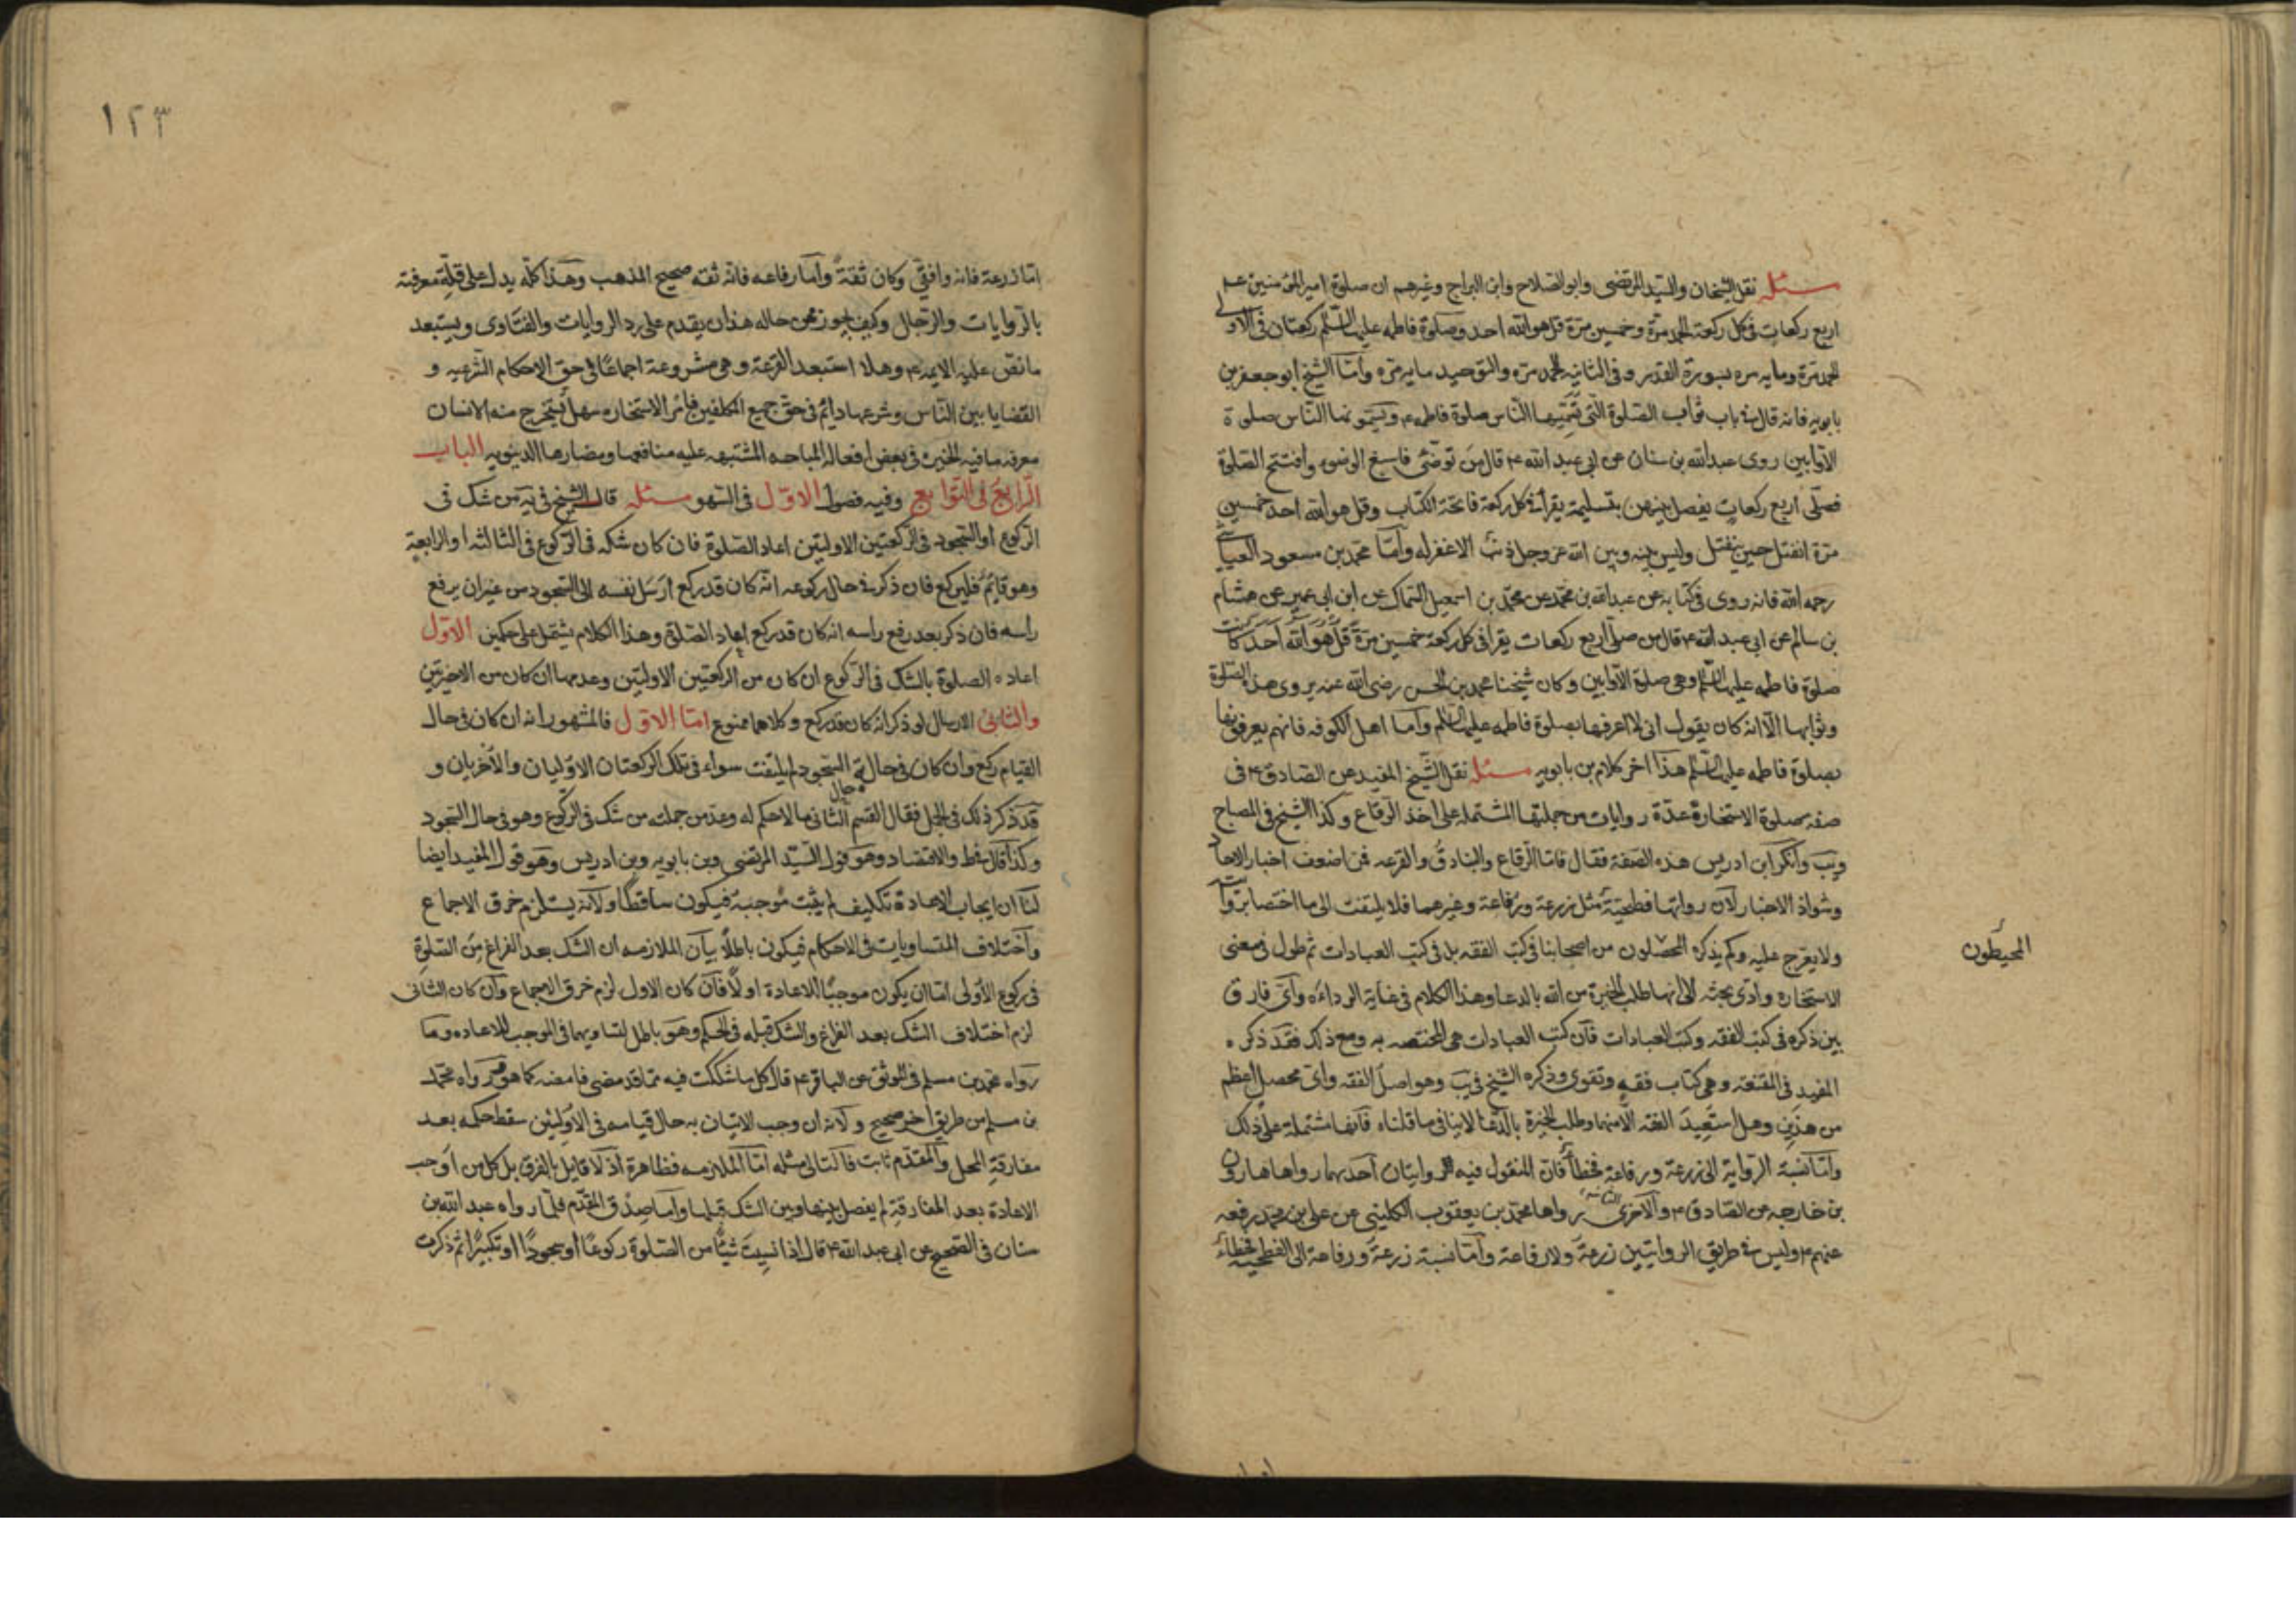 مسئله نقل الشيخان والسيد المرتضى وابو الصلاح وابن البراج وغيرهم ان صلوة امير المؤمنين عليه
اربع ركعات فى كل ركعة الحمد مرة وخمسين مرة قل هو الله احد وصلوة فاطمه عليها السلم ركعتان فى الاولى
الحمد مرة ومايه مره بسورة القدر وفى الثانيه الحمد مره والتوحيد مايه مره وامّا الشيخ ابو جعفر بن
بابويه فانه قال فى باب ثواب الصلوة الّتى يسمّيها النّاس صلوة فاطمه ع ويسمونها النّاس صلوة
الاوّابين روى عبد الله بن سنان عن ابى عبد الله ع قال من توضّى فاسبغ الوضوء وافتتح الصلوة
فصلّى اربع ركعات يفصل بينهن بتسليمة يقرأ فى كل ركعة فاتحة الكتاب وقل هو الله احد خمسين
مرة انفتل حين ينفتل وليس بينه وبين الله عز وجل ذنب الا غفر له وامّا محمّد بن مسعود العياشى
رحمه الله فانه روى فى كتابه عن عبد الله بن محمّد عن محمّد بن اسمعيل السّماك عن ابن ابى عمير عن هشام
بن سالم عن ابى عبد الله ع قال من صلّى اربع ركعات يقرا فى كل ركعة خمسين مرّة قل هو الله احد كانت
صلوة فاطمه عليها السّلم وهى صلوة الاوّابين وكان شيخنا محمد بن الحسن رضى الله عنه يروى هذه الصلوة
وثوابها الّا انه كان يقول انى لا اعرفها بصلوة فاطمه عليها السلم وامّا اهل الكوفه فانهم يعرفونها
بصلوة فاطمه عليها السّلم هذا اخر كلام بن بابويه مسئله نقل الشّيخ المفيد عن الصادق ع فى
صفه صلوة الاستخارة عدّة روايات من جملتها المشتمله على اخذ الرقاع وكذا الشيخ فى المصباح
ويب وانكر ابن ادريس هذه الصّفة فقال فامّا الرّقاع والبنادق والقرعه فمن اضعف اخبار الاحاد
وشواذ الاخبار لان رواتها فطحيّة مثل زرعة ورفاعة وغيرهما فلا يلتفت الى ما اختصا بروايته
ولا يعرج عليه ولم يذكره المحصّلون من اصحابنا فى كتب الفقه بل فى كتب العبادات ثم طول فى معنى
الاستخاره وادى بحثه الى انها طلب الخيرة من الله بالدعا وهذا الكلام فى غاية الرداءه واىّ فارق
بين ذكره فى كتب الفقه وكتب العبادات فان كتب العبادات هى المختصه به ومع ذلك فقد ذكره
المفيد فى المقنعة وهى كتاب فقه وفتوى وذكره الشيخ فى يب وهو اصل الفقه واىّ محصل اعظم
من هذين وهل استفيد الفقه الّا منهما وطلب الخيرة بالدّعا لا ينافى ما قلناه فانها مشتملة على ذلك
وامّا نسبة الرّواية الى زرعة ورفاعة فخطأ فان المنقول فيه روايتان احدهما رواها هارون
بن خارجه عن الصّادق ع والاخرى رواها محمّد بن يعقوب الكلينى عن على بن محمد رفعه
عنهم ع وليس فى طريق الروايتين زرعة ولا رفاعة وامّا نسبة زرعة ورفاعة الى الفطحيّة فخطأ
المحيطون
١٢٣
امّا زرعة فانه واقفى وكان ثقةً وامّا رفاعه فانه ثقه صحيح المذهب وهذا كلّه يدل على قلّة معرفته
بالرّوايات والرّجال وكيف يجوز ممّن حاله هذا ان يقدم على رد الروايات والفتاوى ويستبعد
ما نصّ عليه الايمه ع وهلا استبعد القرعة وهى مشروعة اجماعًا فى حق الاحكام الشرعيه و
القضايا بين النّاس وشرعها دائم فى حق جميع المكلفين فامر الاستخاره سهل يستخرج منه الانسان
معرفه ما فيه الخيره فى بعض افعاله المباحه المشتبهه عليه منافعها ومضارها الدنيويه الباب
الرّابع فى التّوابع وفيه فصول الاوّل فى السّهو مسئله قال الشيخ فى يه من شك فى
الركوع او السّجود فى الركعتين الاوليتين اعاد الصّلوة فان كان شكه فى الركوع فى الثالثه او الرّابعة
وهو قايم فليركع فان ذكر فى حال ركوعه انّه كان قد ركع ارسل نفسه الى السّجود من غير ان يرفع
راسه فان ذكر بعد رفع راسه انه كان قد ركع اعاد الصّلوة وهذا الكلام يشتمل على حكمين الاوّل
اعاده الصلوة بالشك فى الرّكوع ان كان من الركعتين الاوليتين وعدمها ان كان من الاخيرتين
والثانى الارسال لو ذكر انّه كان قد ركع وكلاهما ممنوع امّا الاوّل فالمشهور انه ان كان فى حال
القيام ركع وان كان فى حالة السّجود لم يلتفت سواء فى تلك الركعتان الاوّليان والاخريان و
قد ذكر ذلك فى الجمل فقال القسم الثانى ما لا حكم له وعدّ من جملته من شك فى الركوع وهو فى حال السّجود
وكذا قال فى ط والاقتصاد وهو قول السيّد المرتضى وبن بابويه وبن ادريس وهو قول المفيد ايضا
لنا ان ايجاب الاعادة تكليف لم يثبت موجبه فيكون ساقطًا ولانه يستلزم خرق الاجماع
واختلاف المتساويات فى الاحكام فيكون باطلًا بيان الملازمه ان الشك بعد الفراغ من الصّلوة
فى ركوع الاولى امّا ان يكون موجبًا للاعادة او لا فان كان الاول لزم خرق الاجماع وان كان الثانى
لزم اختلاف الشك بعد الفراغ والشك قبله فى الحكم وهو باطل لتساويهما فى الموجب للاعاده وما
رواه محمد بن مسلم فى الموثق عن الباقر ع قال كل ما شككت فيه ممّا قد مضى فامضه كما هو رواه محمّد
بن مسلم من طريق اخر صحيح ولانه ان وجب الاتيان به حال قيامه فى الاوليتين سقط حكمه بعد
مفارقة المحل والمقدّم ثابت فالتالى مثله امّا الملازمه فظاهرة اذ لا قايل بالفرق بل كل من اوجب
الاعادة بعد المفارقة لم يفصل بينها وبين الشك قبلها وامّا صدق المقدّم فلما رواه عبد الله بن
سنان فى الصّحيح عن ابى عبد الله ع قال اذا نسيت شيئًا من الصّلوة ركوعًا او سجودًا او تكبيرًا ثم ذكرت